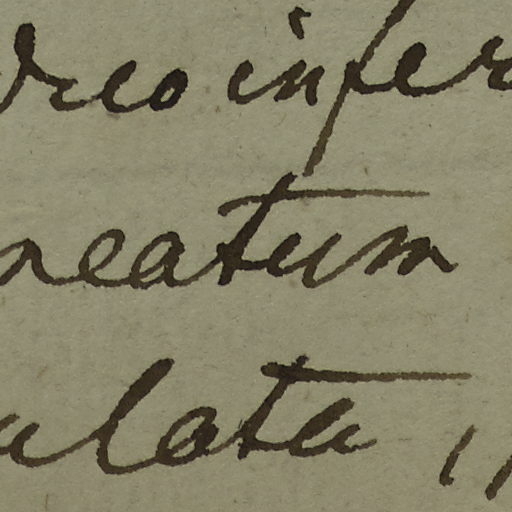 dreo infer
neatum
ulata, "